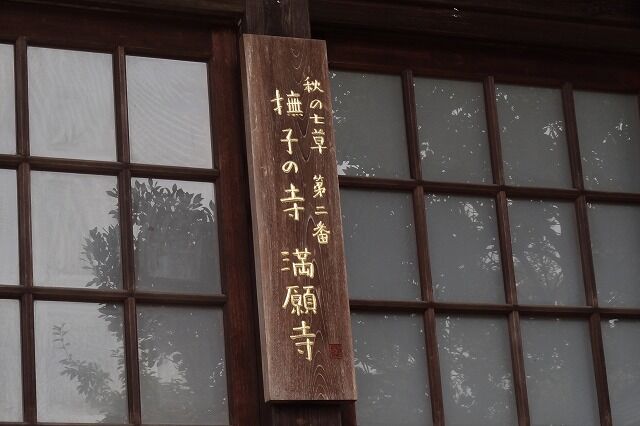 秋の七草 第二番
撫子の寺 満願寺